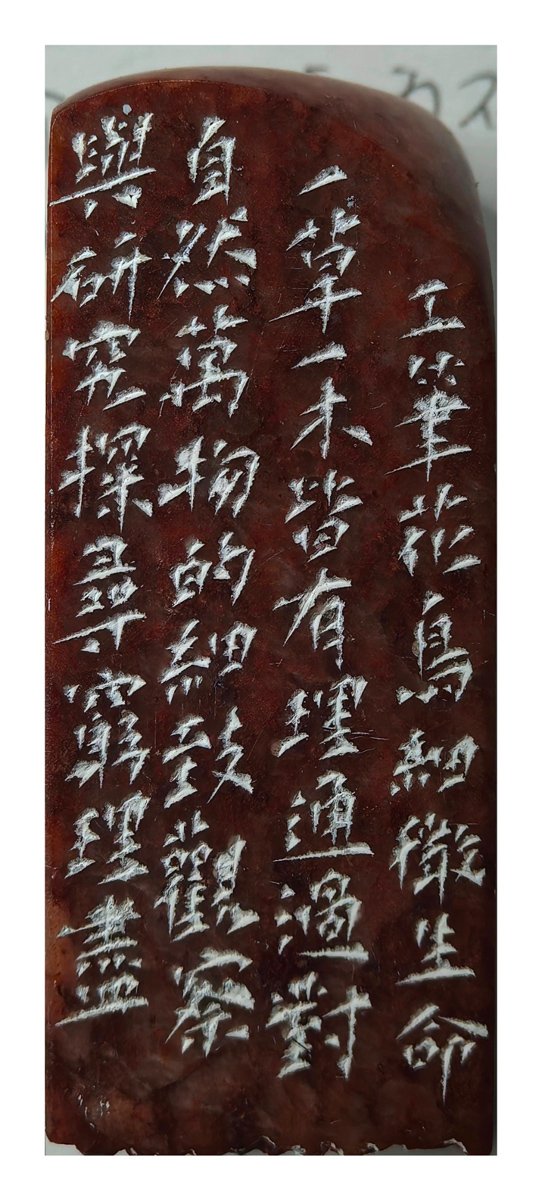 工筆花鳥細微生命
一草一木皆有理通過對
自然萬物的細致觀察
與研究探尋窮理盡